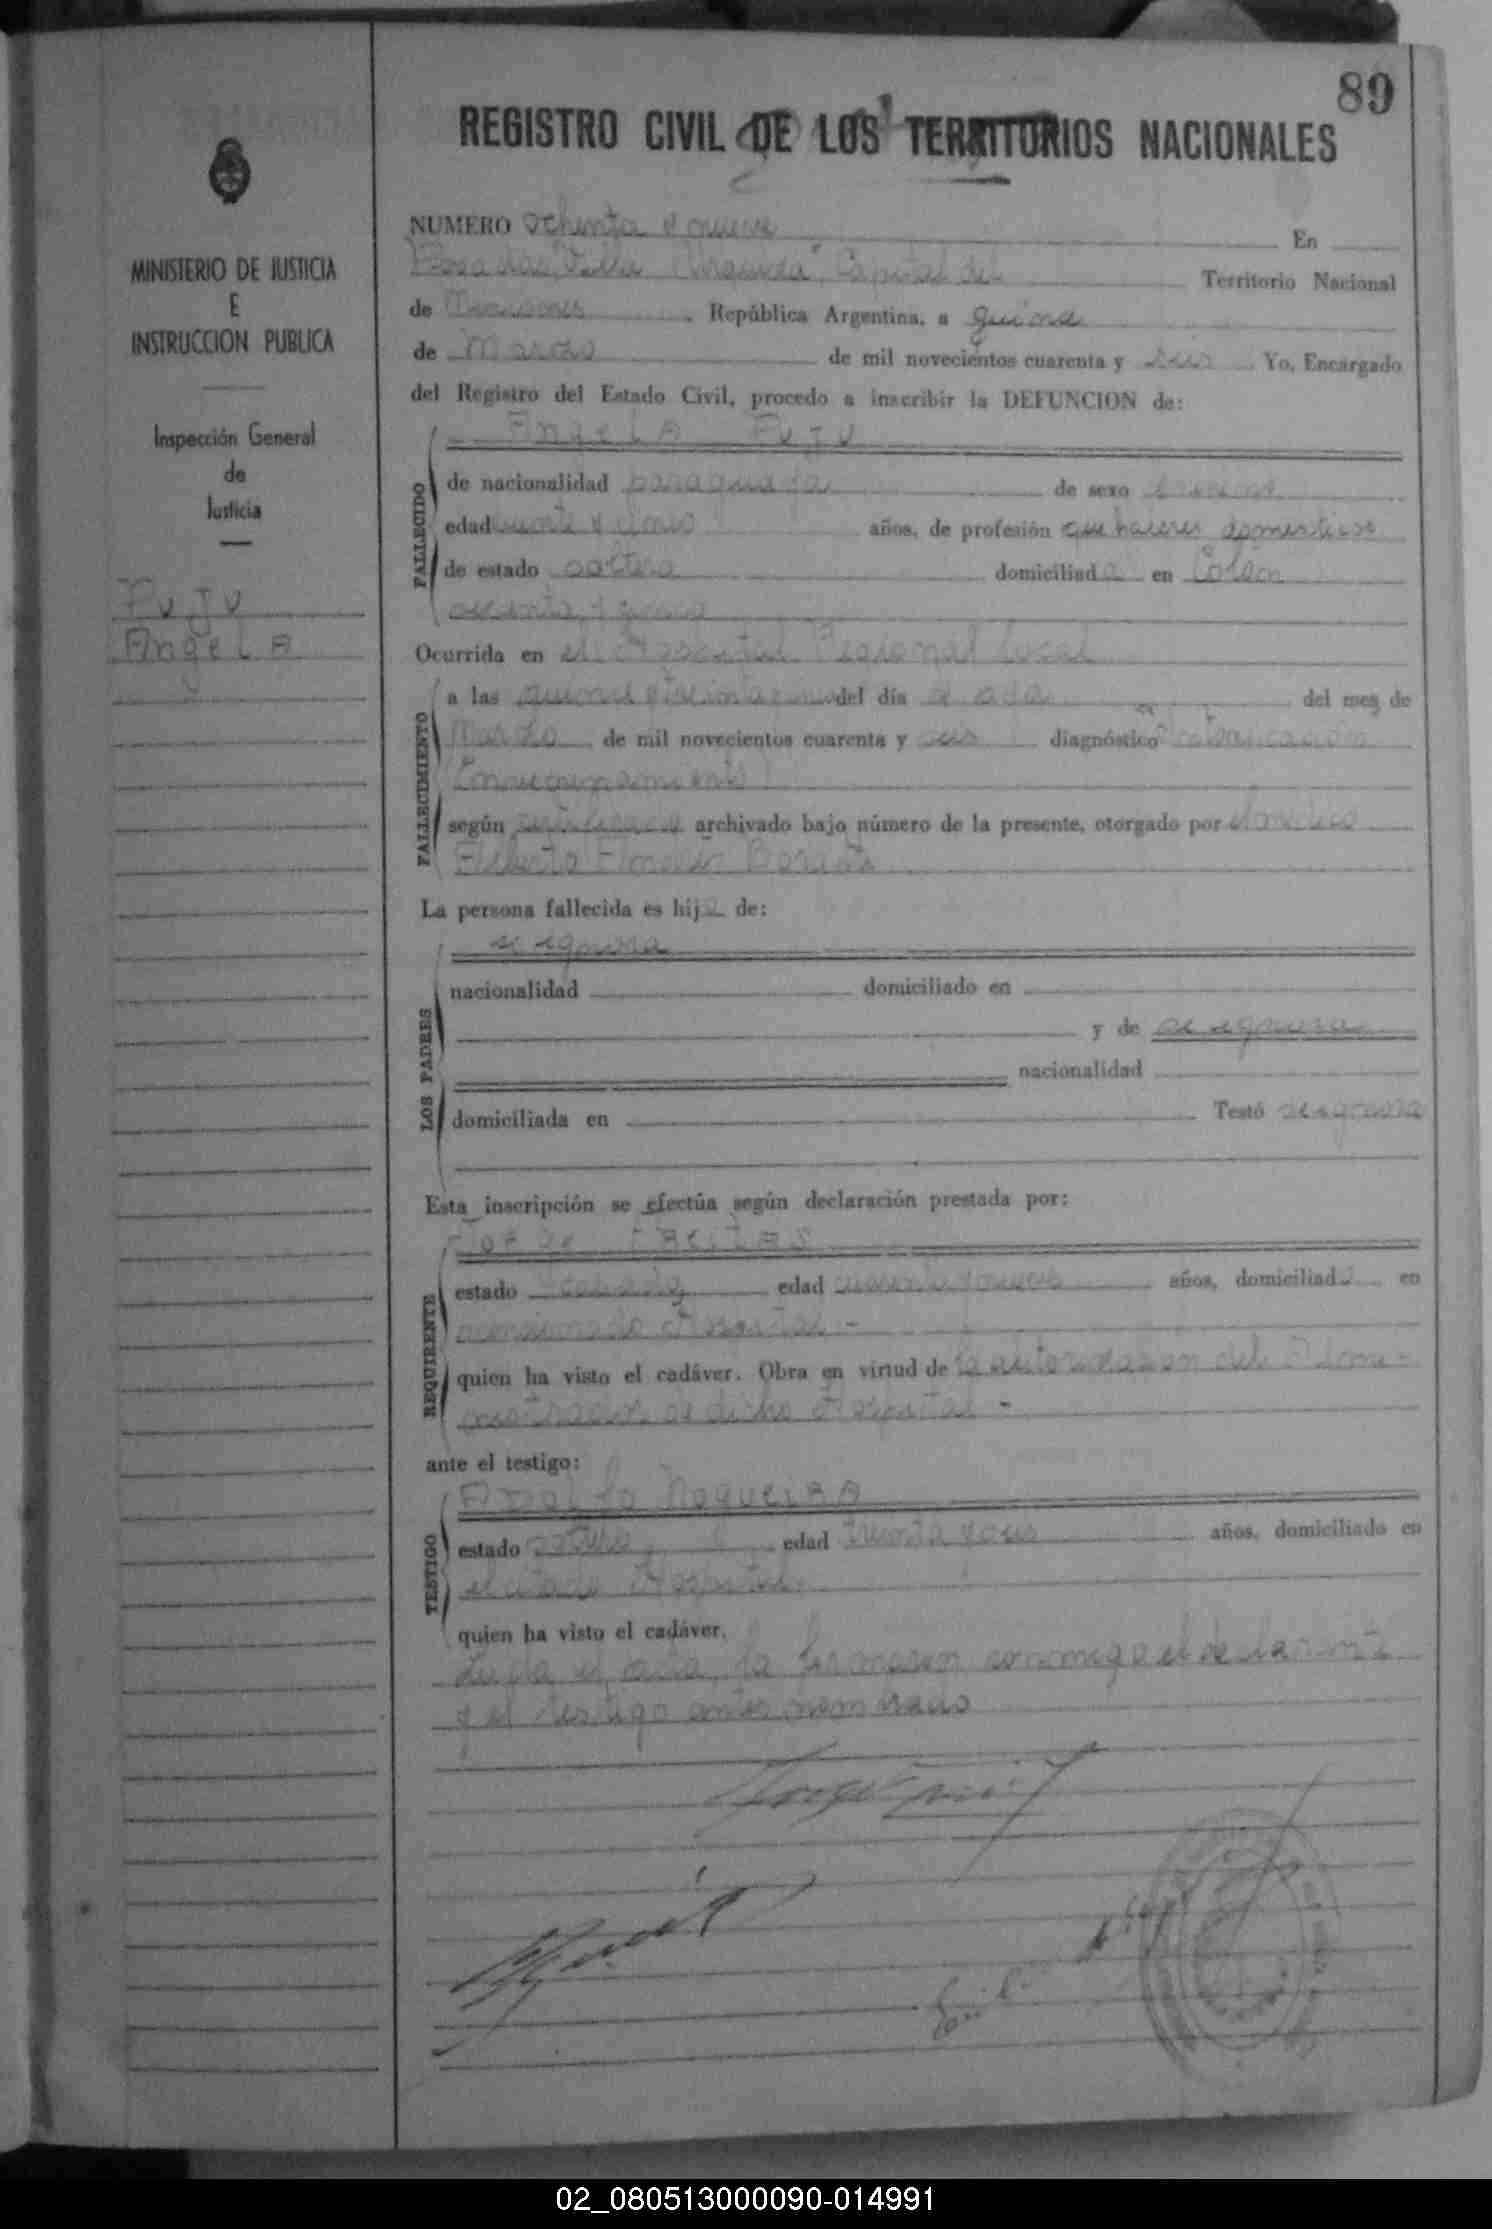 89
REGISTRO CIVIL DE LOS TERRITORIOS NACIONALES
MINISTERIO DE JUSTICIA
E
INSTRUCCION PUBLICA
Inspección General
de
Justicia
Puju
Angela
NUMERO ochenta y nueve En
Posadas, Villa "Urquiza", Capital del Territorio Nacional
de Misiones República Argentina, a quince
de Marzo de mil novecientos cuarenta y seis Yo, Encargado
del Registro del Estado Civil, procedo a inscribir la DEFUNCION de:
Angela Puju
FALLECIDO
de nacionalidad paraguaya de sexo
edad veinte y cinco años, de profesión quehaceres domesticos
de estado soltera domiciliada en Colón
Ocurrida en el Hospital Regional local
FALLECIMIENTO
a las del día de ayer del mes de
Marzo de mil novecientos cuarenta y seis diagnóstico
según certificado archivado bajo número de la presente, otorgado por el médico
Alberto
La persona fallecida es hija de:
LOS PADRES
se ignora
nacionalidad domiciliado en
y de se ignora
nacionalidad
domiciliada en Testó se ignora
Esta inscripción se efectúa según declaración prestada por:
REQUIRENTE
Jorge
estado edad cuarenta y nueve años, domiciliado en
mencionado Hospital -
quien ha visto el cadáver. Obra en virtud de la autorizacion del Admi-
nistracion de dicho Hospital -
ante el testigo:
TESTIGO
Adolfo Nogueira
estado soltero edad treinta y seis años, domiciliado en
el citado Hospital.
quien ha visto el cadáver.
Leida el acta, la firmaron conmigo el declarante
y el testigo antes nombrado
02_080513000090-014991